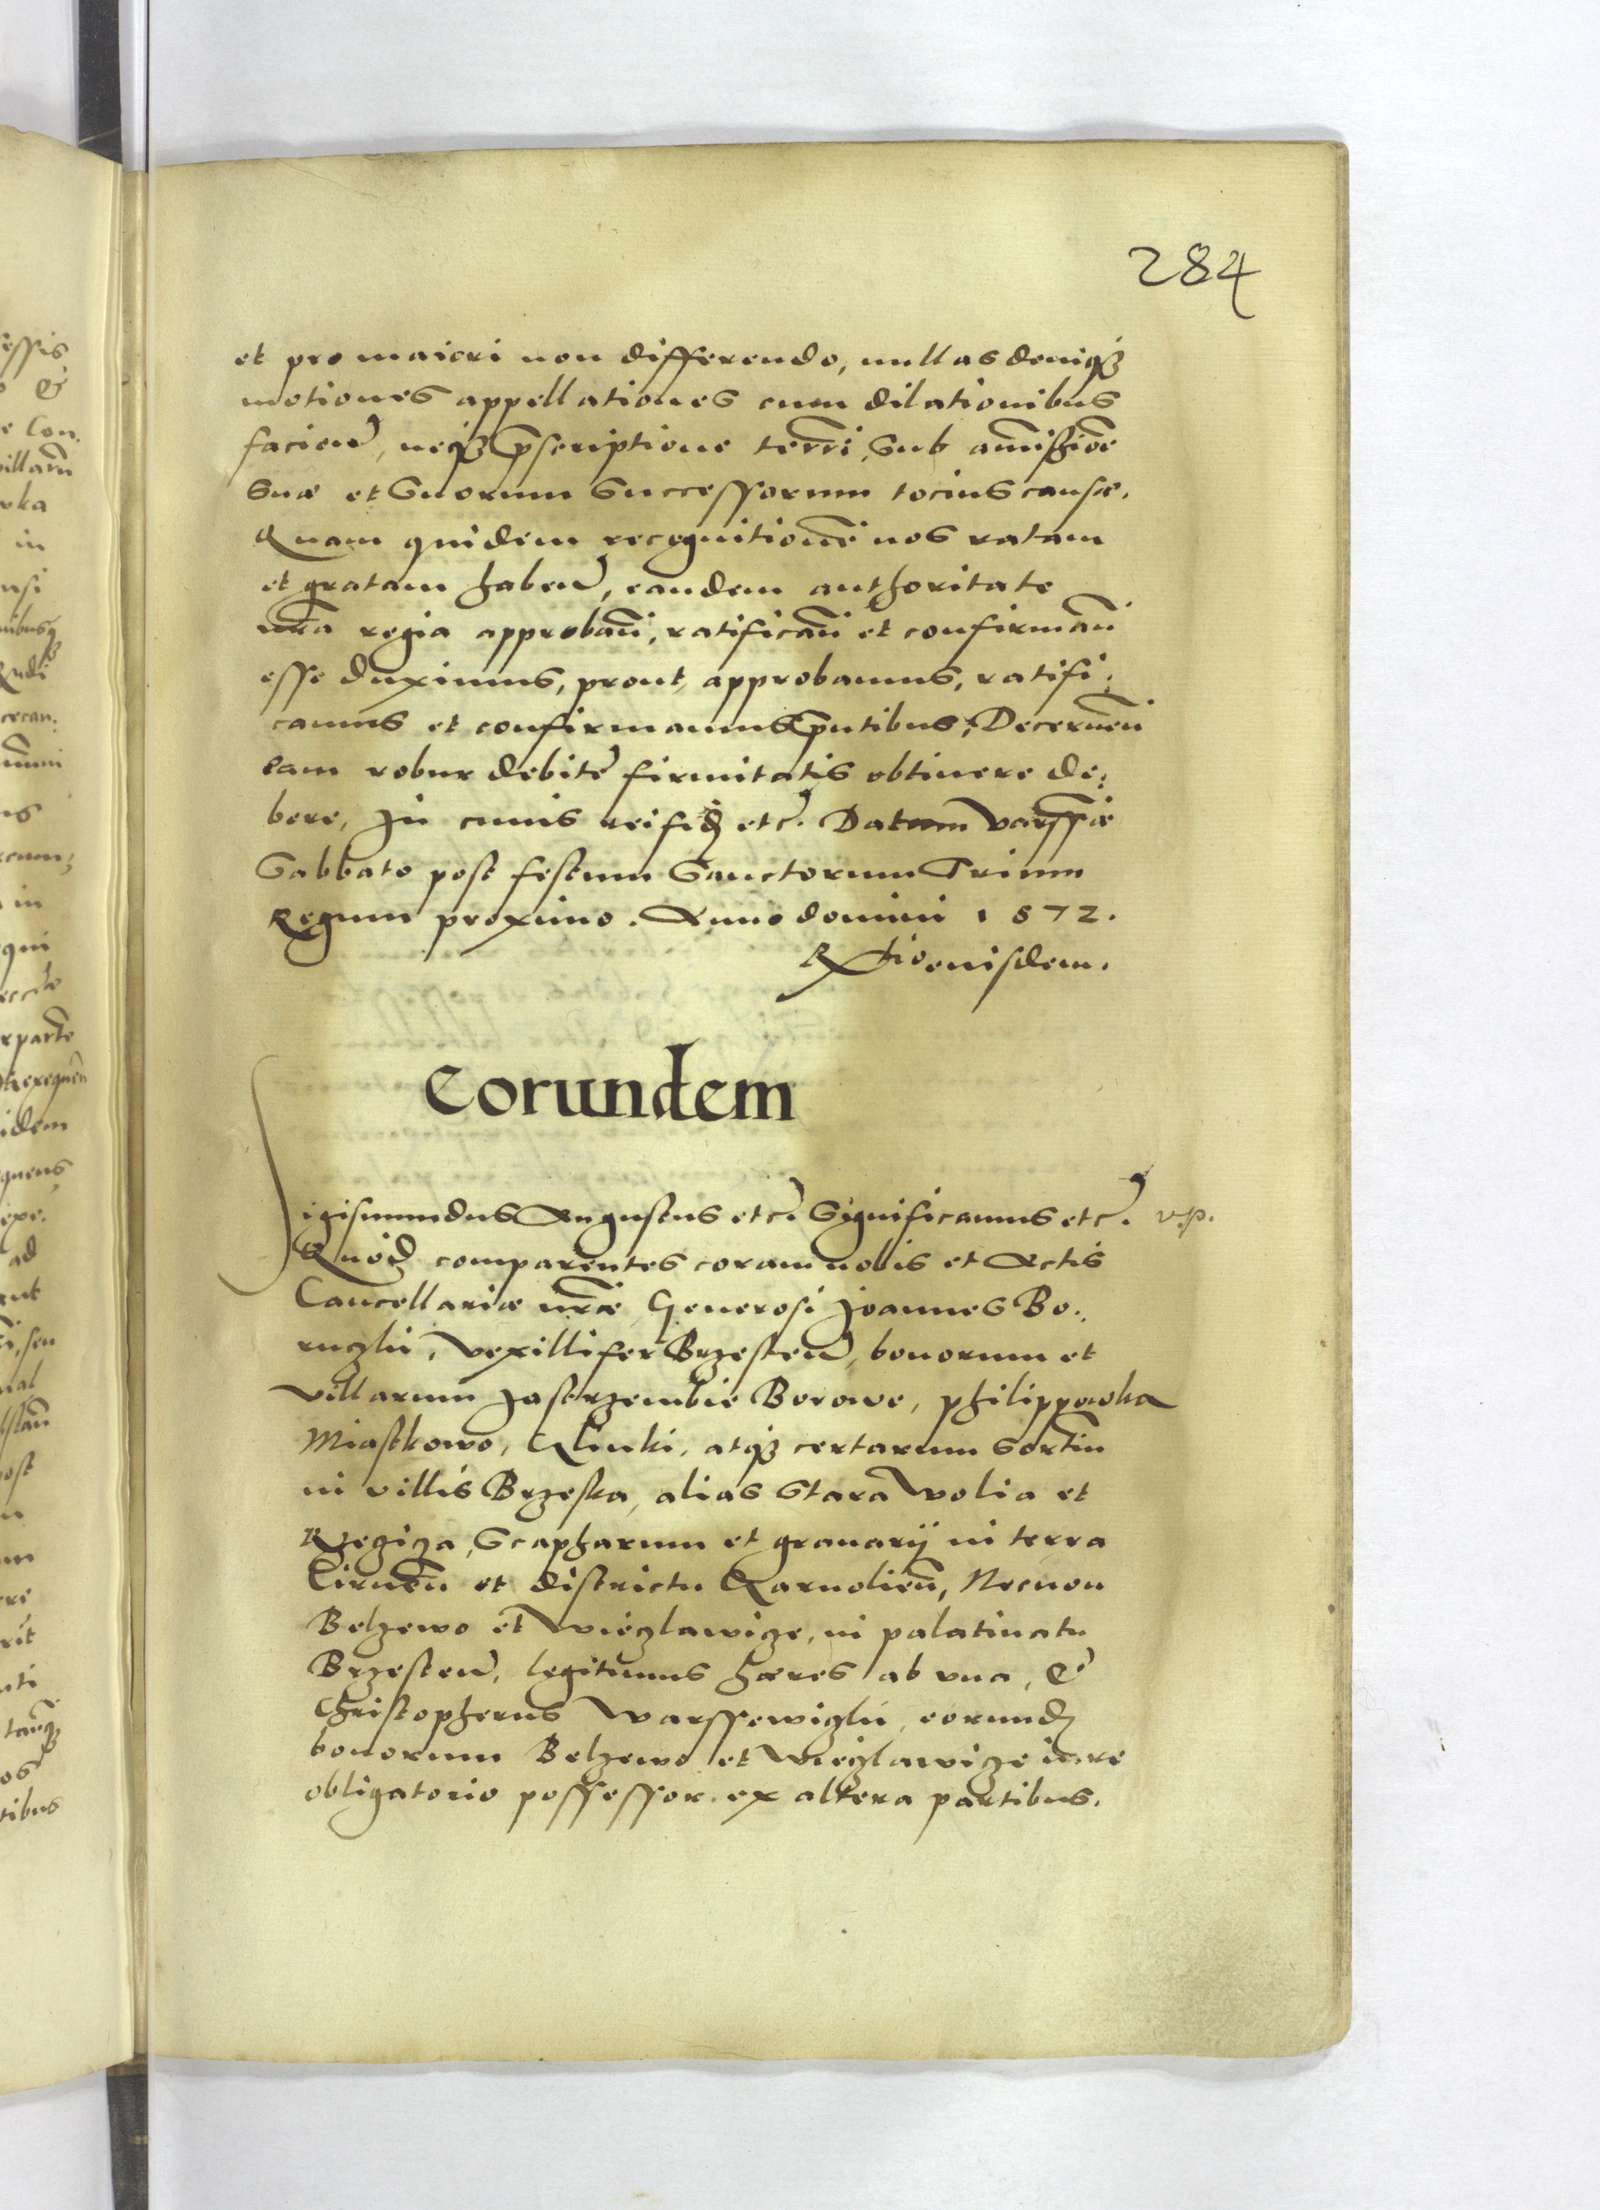 284
et pro maiori non differendo, nullas deniqз
motiones appellationes cum dilationibus
facien, neqз pscriptione terri, sub amissioe
suæ et suorum successorum tocius causæ.
Quam quidem recognitione nos ratam
et gratam haben, eandem authoritate
nra regia approban, ratifican et confirman
esse duximus, prout approbamus, ratifi:
camus et confirmamus pntibus, Decernen
eam robur debite firmitatis obtinere de:
bere, In cuius rei fid etc. Datum Varssæ
Sabbato post festum Sanctorum Trium
Regum proximo. Anno domini 1572.
Rtio eiusdem.
Eorundem
Sigismundus Augustus etc. Significamus etc. v.p.
Quod comparentes coram nobis et Actis
Cancellariæ nræ Generosi Joannes Bo:
ruczki, Vexillifer Brzesten, bonorum et
villarum Jastrzembie Borowe, philippowka
Miastkowo, Klinki, atqз certarum Sortiu
in villis Brzeska, alias Stara Wolia et
Scapharum et granarij in terra
Cirnen et districtu Garuolien, Necnon
Belzewo et Wiezlawize, in palatinatu
Brzesten, legitimus hæres ab vna, &
Christopherus Warssewizki, eorund
bonorum Belzewo et Wiezlawize iure
obligatorio possessor. ex altera partibus.